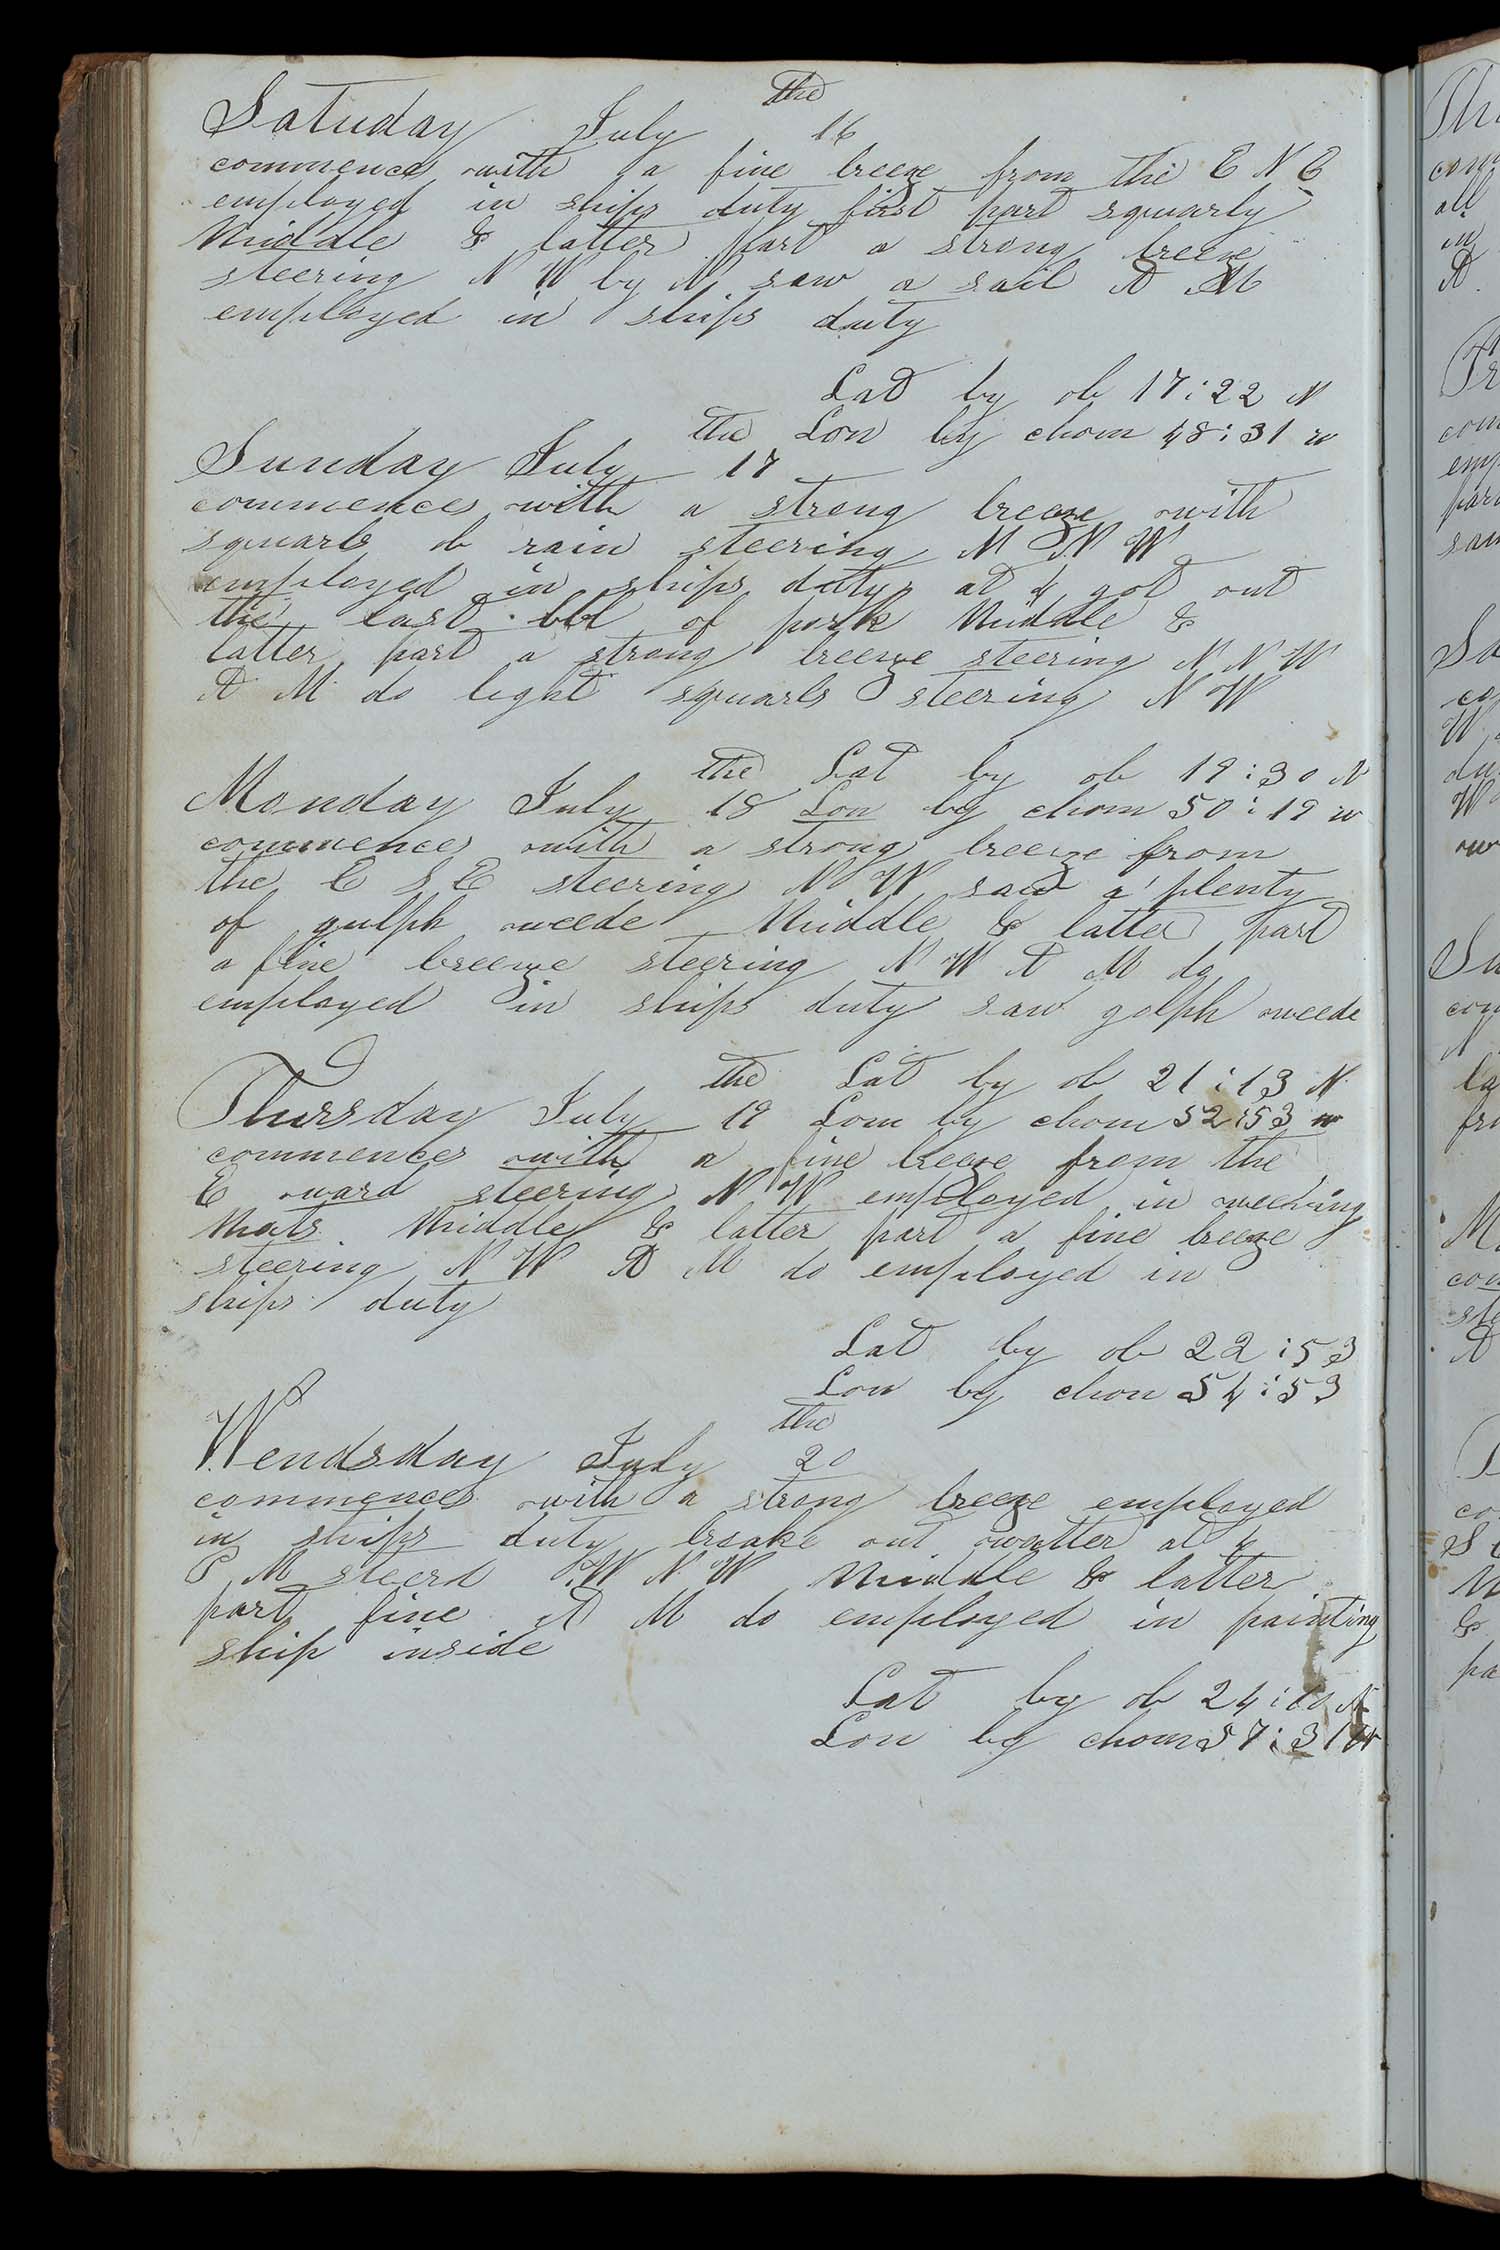 the
Satuday July 16
commences with a fine breeze from the E N E
employed in ships duty first part squarly
Middle & latter part a strong breeze
steering N W by N saw a sail A M
employed in ships duty
Lat by ob 17:22 N
the Lon by chom 48:31 w
Sunday July 17
commences with a strong breeze with
squarls ob rain steering N N W
employed in ships duty at 4 got out
the last bbl of pork Middle &
latter part a strong breeze steering N N W
A M do light squarls steering N W
the Lat by ob 19:30 N
Monday July 18 Lon by chom 50:19 w
commences with a strong breeze from
the E S E steering N W saw a plenty
of gulph weede Middle & latter part
a fine breeze steering N W A M do
employed in ships duty saw golph weede
the Lat by ob 21:13 N
Thursday July 19 Lom by chom 52:53 w
commences with a fine breeze from the
E ward steering N W employed in weeving
Mats Middle & latter part a fine breeze
steering N W A M do employed in
ships duty
Lat by ob 22:53
Lon by chon 54:53
the
Wendsday July 20
commences with a strong breeze employed
in ships duty broake out watter at 4
P M steerd W N W Middle & latter
part fine A M do employed in painting
ship inside
Lat by ob 24: N
Lon by chom 57:31 w
Th
com
all
in
A
Fr
com
emp
part
saw
Sa
co
W
du
W
Su
com
N
la
fro
M
com
ste
A
co
S
M
&
pa